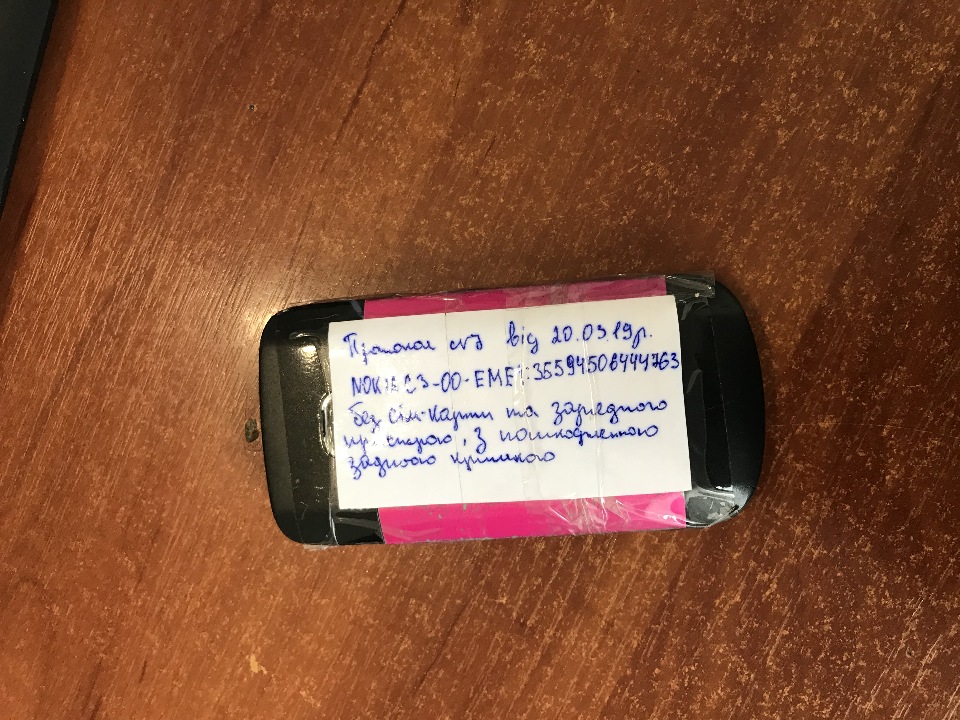 Протокол №7 від 20.03.19р.
NOKIA C3-00-EMEI:35594506444763
без сім-карти та зарядного
пристрою, з пошкодженною
задньою кришкою